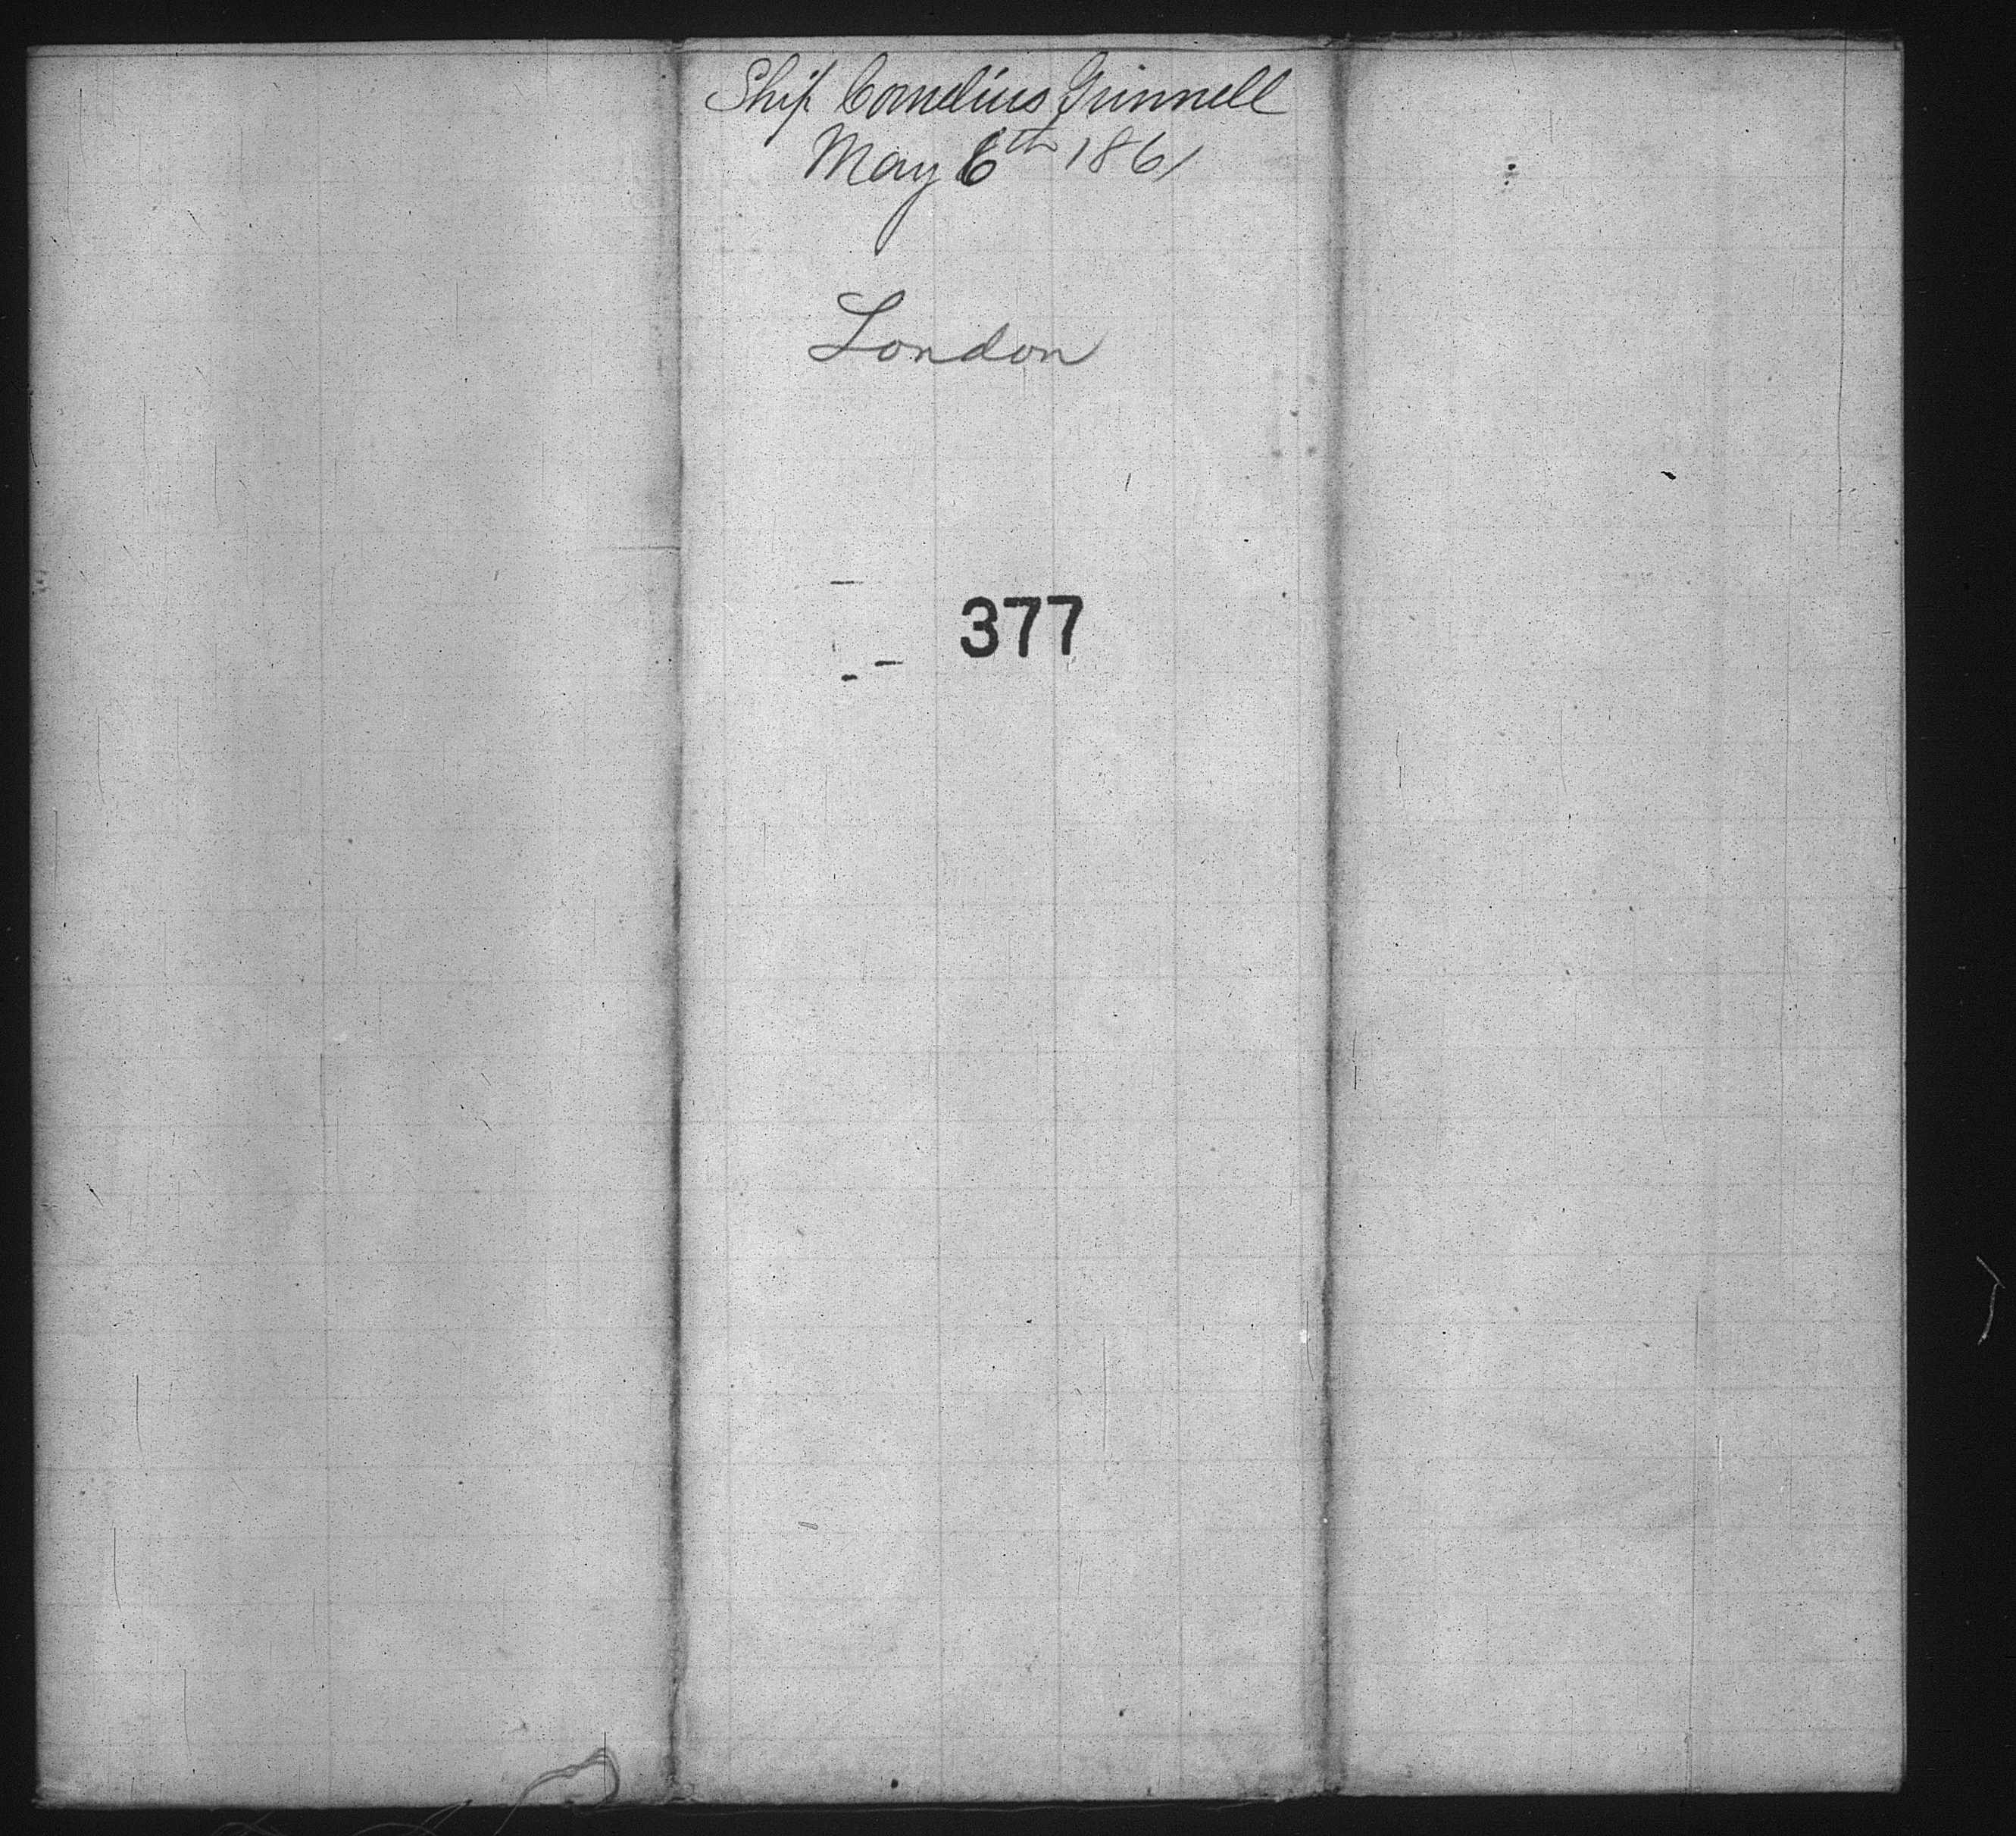 Ship Cornelius Grinnell
May 6th 1861
London
377